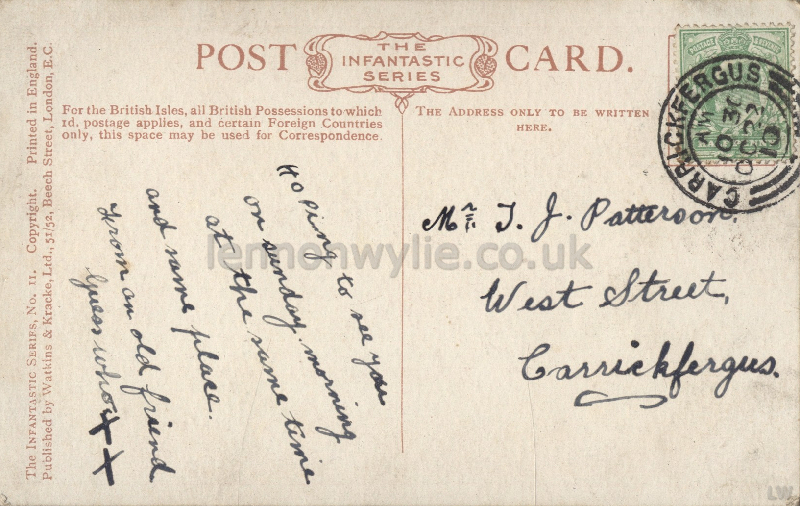 POST CARD.
THE
INFANTASTIC
SERIES
For the British Isles, all British Possessions to which
1d. postage applies, and certain Foreign Countries
only, this space may be used for Correspondence.
THE ADDRESS ONLY TO BE WRITTEN
HERE.
POSTAGE
CARRICKFERGUS
10 30 AM
OC 22
10
Hoping to see you
on sunday morning
at the same time
and same place.
From an old friend
Guess who
x x
Mr. T. J. Patterson.
West Street,
Carrickfergus.
The INFANTASTIC SERIES, No. 11. Copyright. Printed in England.
Published by Watkins & Kracke, Ltd., 51/52, Beech Street, London, E.C.
lennonwylie.co.uk
LW